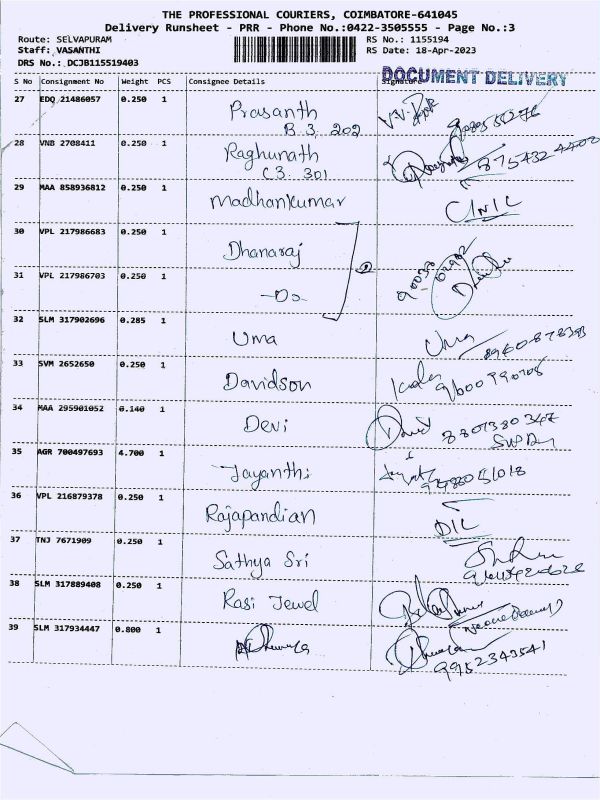 THE PROFESSIONAL COURIERS, COIMBATORE-641045
Delivery Runsheet - PRR - Phone No.:0422-3505555 - Page No.:3
Route: SELVAPURAM RS No.: 1155194
Staff: VASANTHI RS Date: 18-Apr-2023
DRS No.: DCJB115519403
DOCUMENT DELIVERY
S No Consignment No Weight PCS Consignee Details Signature
27 EDQ 21486057 0.250 1 Prasanth
B 3, 202
28 VNB 2708411 0.250 1 Raghunath
C3. 301
29 MAA 858936812 0.250 1 Madhankumar
30 VPL 217986683 0.250 1 Dhanaraj
31 VPL 217986703 0.250 1 -Do-
32 SLM 317902696 0.285 1 Uma Uma
33 SVM 2652650 0.250 1 Davidson
34 MAA 295901052 0.140 1 Devi
35 AGR 700497693 4.700 1 Jayanthi
36 VPL 216879378 0.250 1 Rajapandian
37 TNJ 7671909 0.250 1 Sathya Sri
38 SLM 317889408 0.250 1 Rasi Jewel
39 SLM 317934447 0.800 1
9952343541